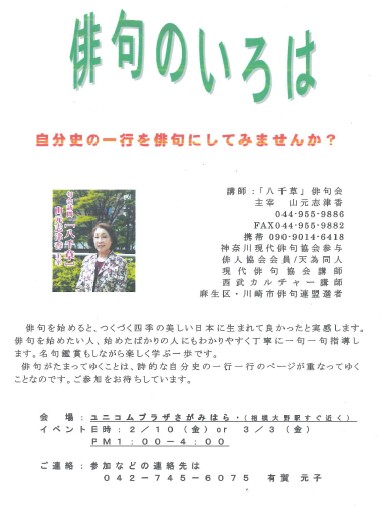 俳句のいろは
自分史の一行を俳句にしてみませんか？
講師：「八千草」俳句会
主宰 山元志津香
044-955-9886
FAX044-955-9882
携帯 090-9014-6418
神奈川現代俳句協会参与
俳人協会会員/天為同人
現代俳句協会講師
西武カルチャー講師
麻生区・川崎市俳句連盟選者
俳句を始めると、つくづく四季の美しい日本に生まれて良かったと実感します。
俳句を始めたい人、始めたばかりの人にもわかりやすく丁寧に一句一句指導し
ます。名句鑑賞もしながら楽しく学ぶ一歩です。
俳句がたまってゆくことは、詩的な自分史の一行一行のページが重なってゆく
ことなのです。ご参加をお待ちしています。
会 場：ユニコムプラザさがみはら・（相模大野駅すぐ近く）
イベント日時：２／１０（金）or ３／３（金）
ＰＭ１：００～４：００
ご連絡：参加などの連絡先は
０４２－７４５－６０７５ 有賀 元子